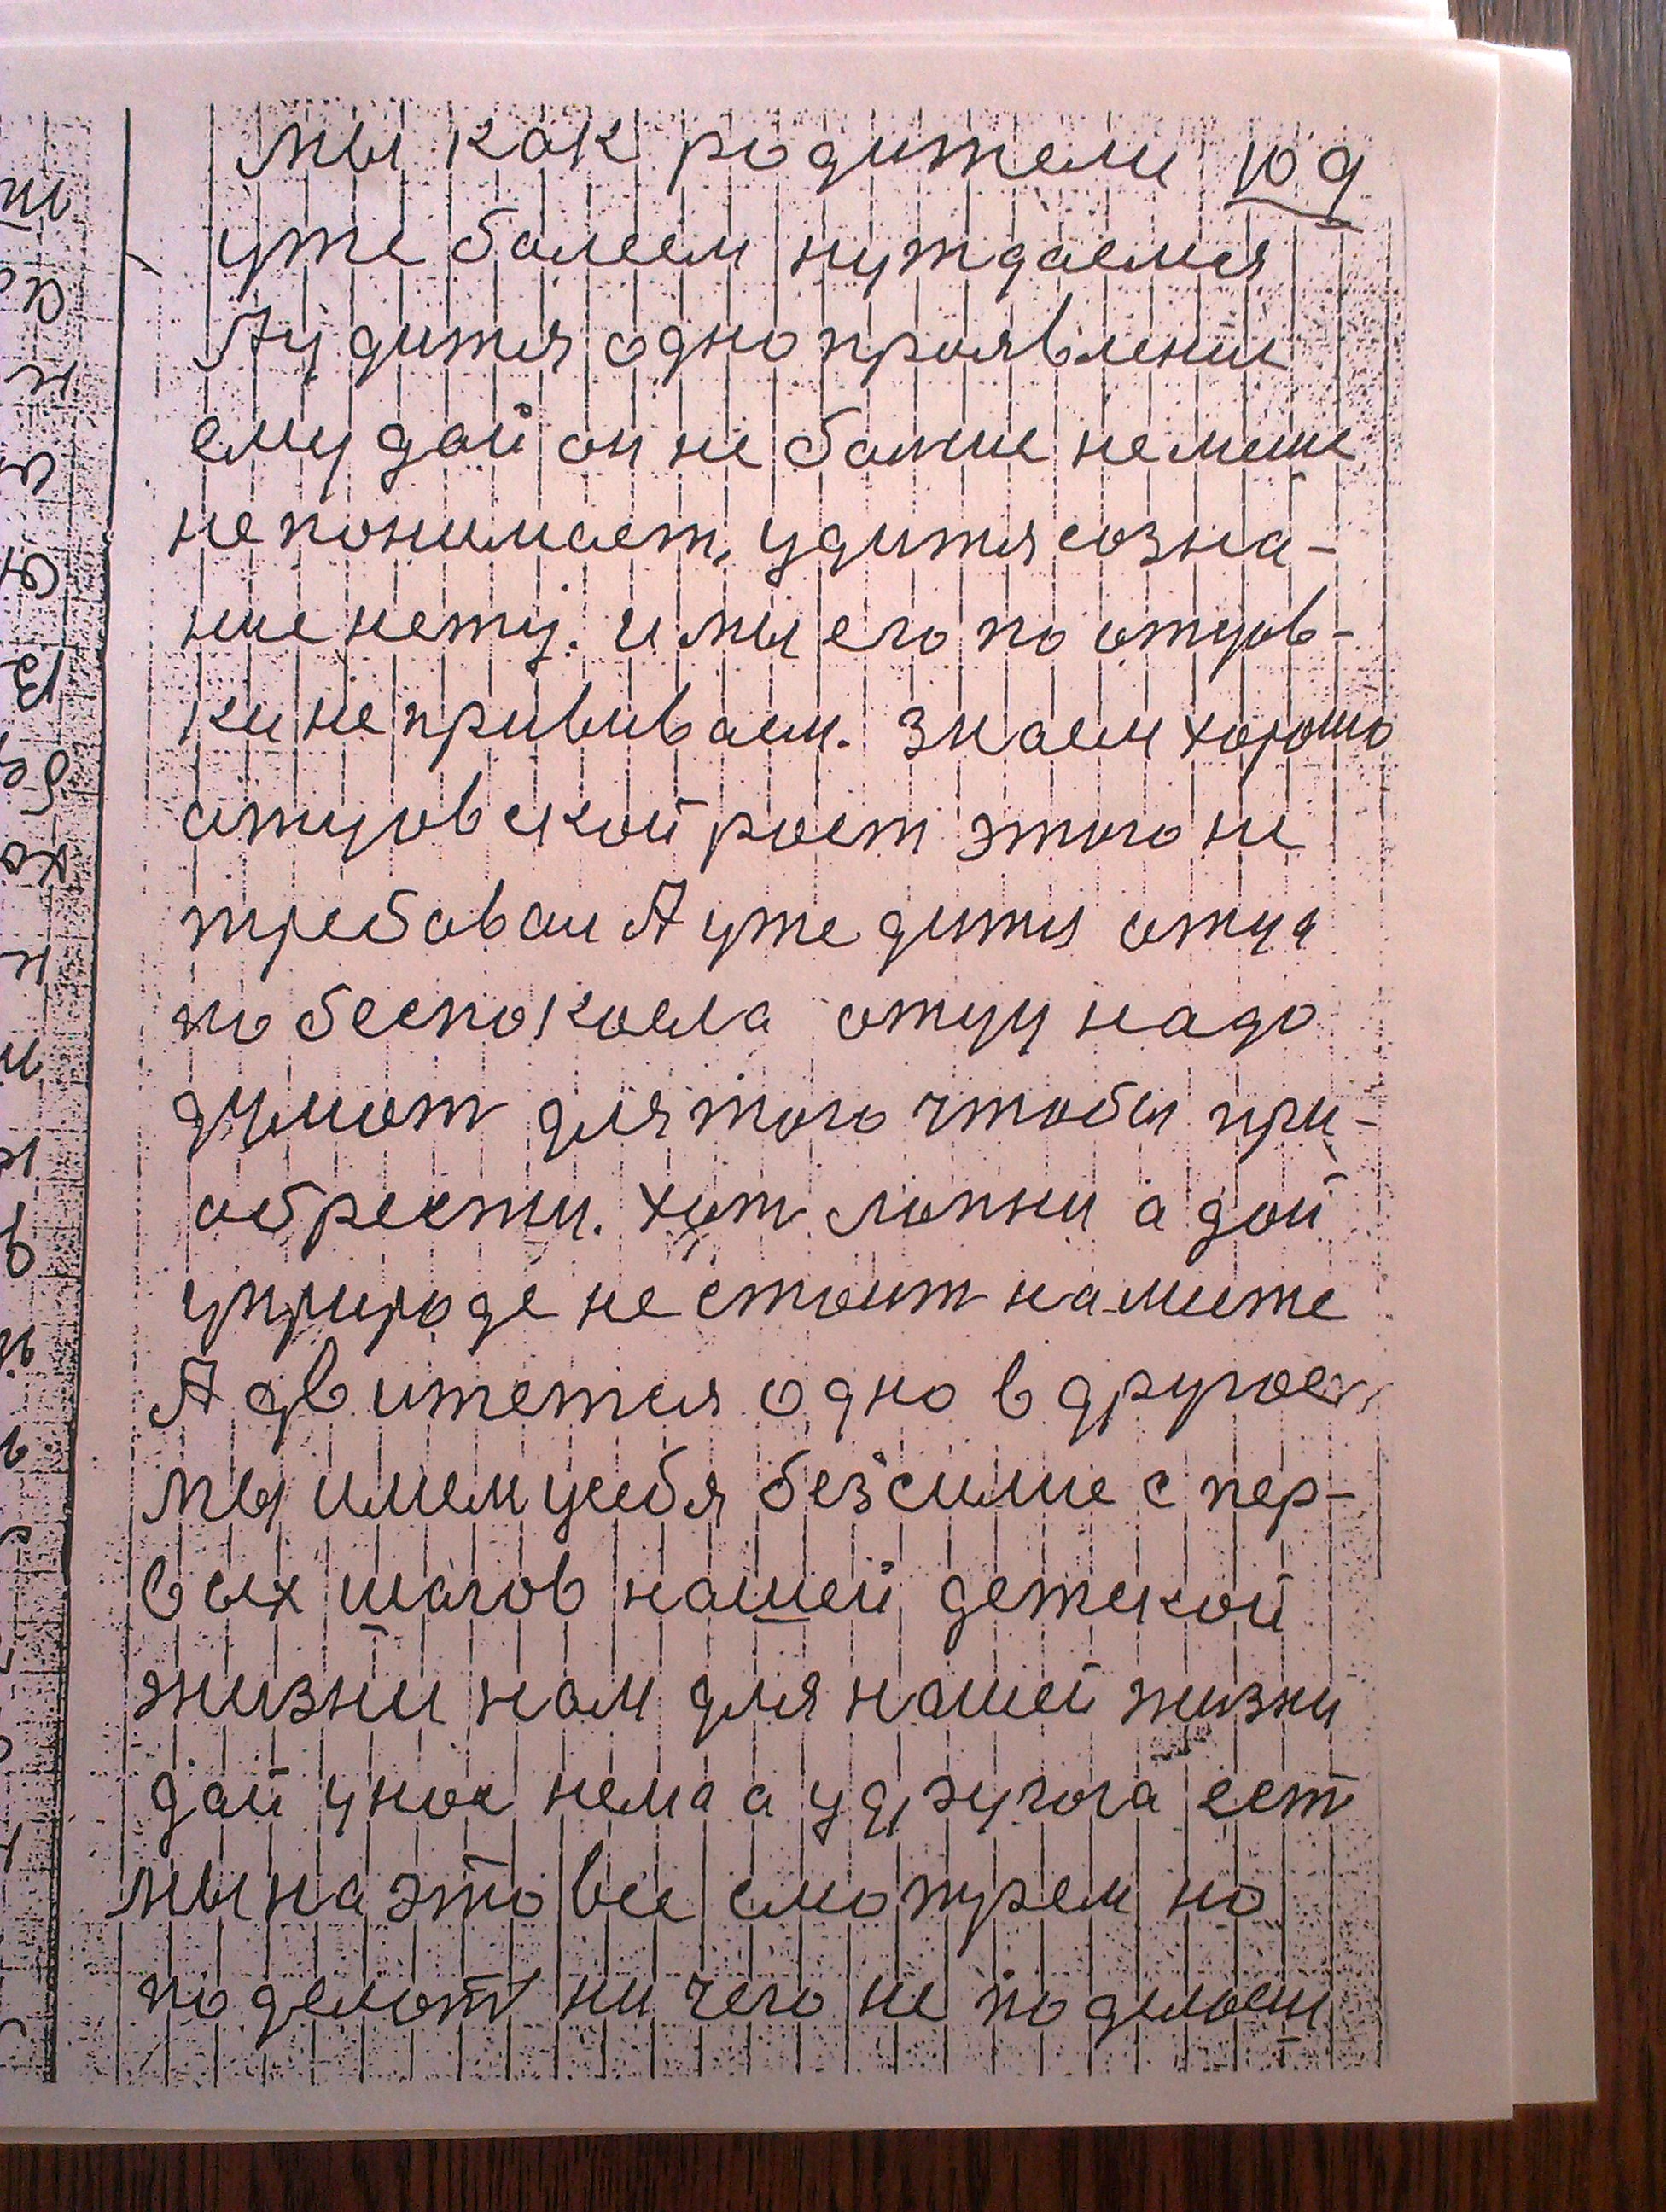 мы как родители 109
уже болеем нуждаемся
А у дитя одно проявлении
ему дай он не болше не мише
не понимает, у дитя созна-
ние нету. и мы его по отцов-
ки не прививаем. знаем хорошо
отцовской рост этого не
требовал А уже дитя отца
побеспокоела отцу надо
думат для того чтобы при-
обрести. хот лопни а дай
у природе не стоит на мите
А двитется одно в другое
мы имем у себя без силие с пер-
вых шагов нашей детской
жизни нам для нашей жизни
дай у нас нема а у другога ест
мы на это все смотрем но
поделат ни чего не поделаеш